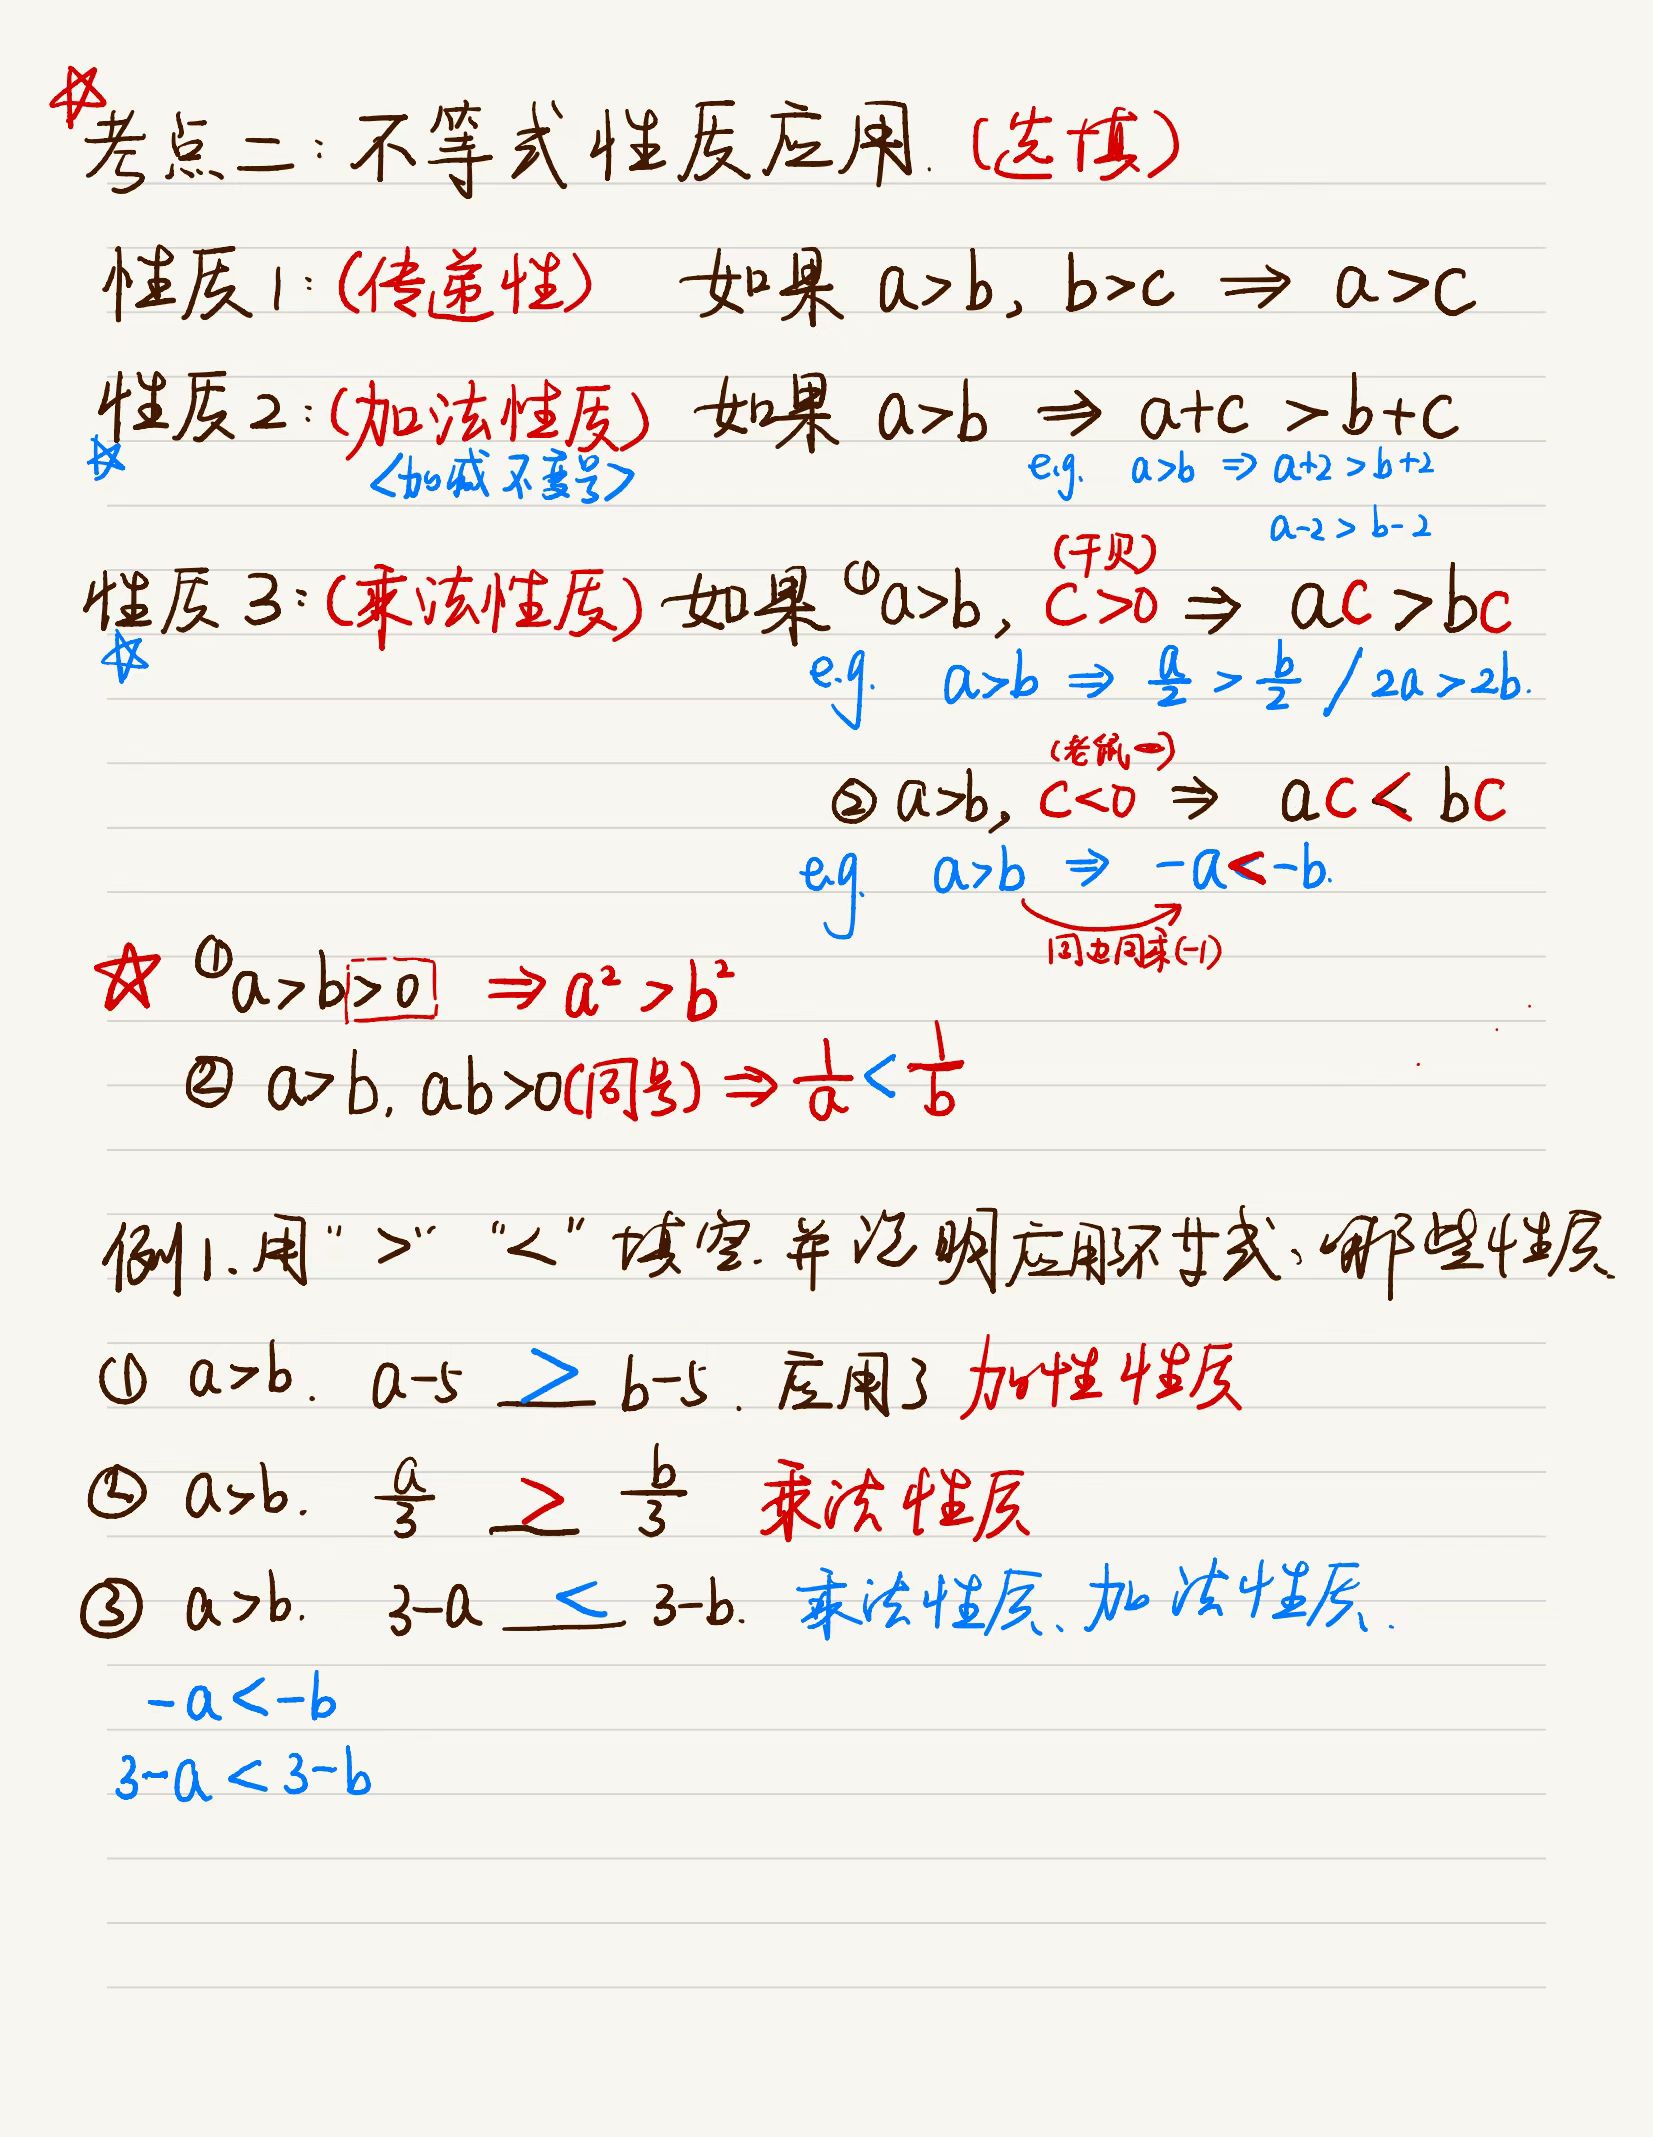 考点二:不等式性质应用.(选填)
性质1:(传递性) 如果 a>b, b>c ⇒ a>c
性质2:(加法性质) 如果 a>b ⇒ a+c >b+c
<加减不变号> e.g. a>b ⇒ a+2>b+2
a-2>b-2
(干贝)
性质3:(乘法性质) 如果 ①a>b, C>0 ⇒ ac>bc
e.g. a>b ⇒ a/2 > b/2 / 2a>2b.
(老鼠一)
② a>b, C<0 ⇒ ac < bc
e.g. a>b ⇒ -a<-b.
同边同乘(-1)
①a>b>0 ⇒ a²>b²
② a>b, ab>0(同号) ⇒ 1/a < 1/b
例1.用">" "<"填空.并说明应用不等式、哪些性质.
① a>b. a-5 > b-5. 应用了 加性性质
② a>b. a/3 > b/3 乘法性质
③ a>b. 3-a < 3-b. 乘法性质、加法性质.
-a<-b
3-a<3-b